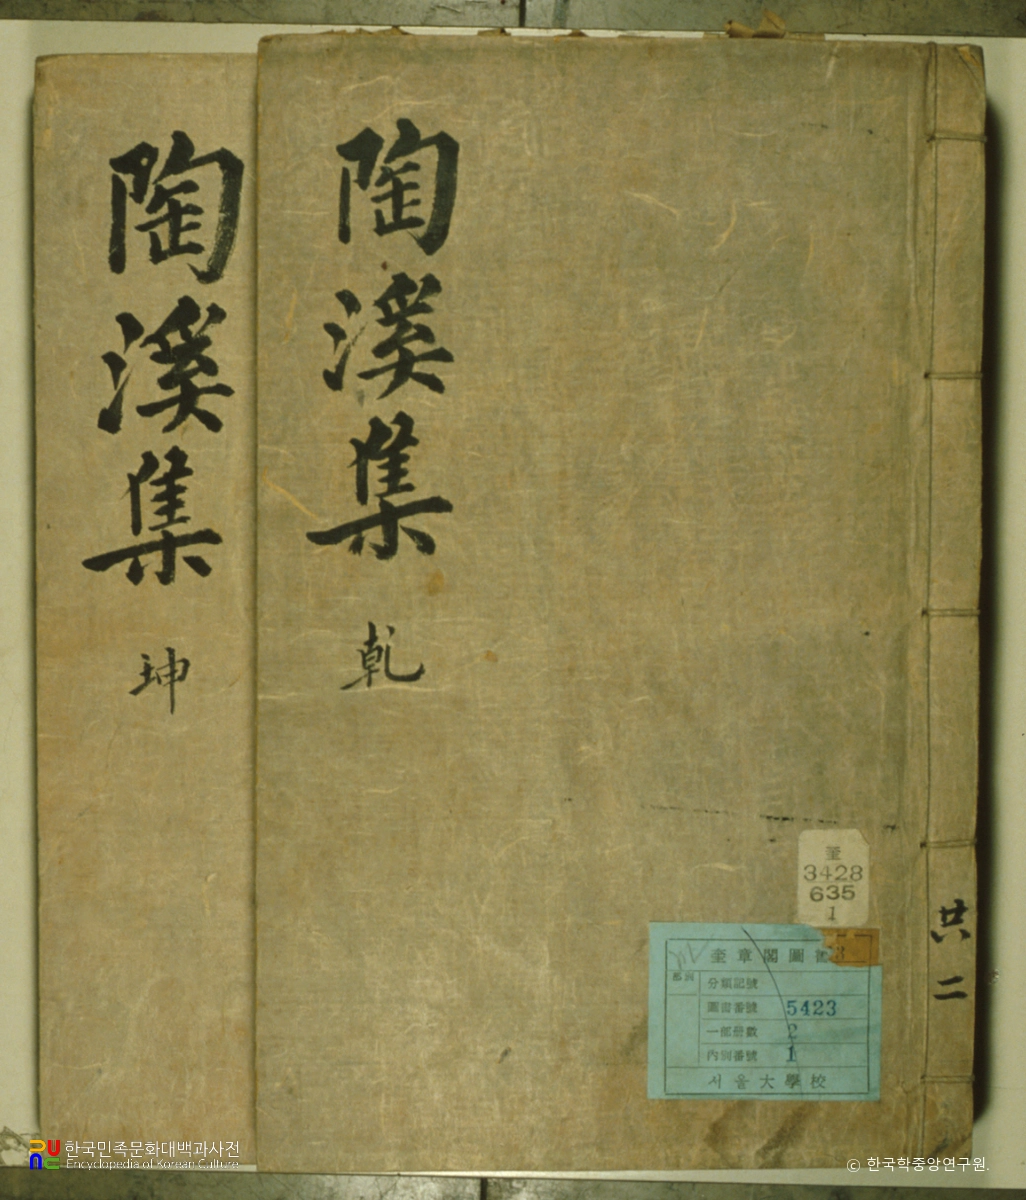 陶溪集
乾
陶溪集
坤
共二
奎
3428
635
1
奎章閣圖書
分類記號
圖書番號 5423
一部冊數 2
內別番號 1
서울大學校
한국민족문화대백과사전
Encyclopedia of Korean Culture
© 한국학중앙연구원.